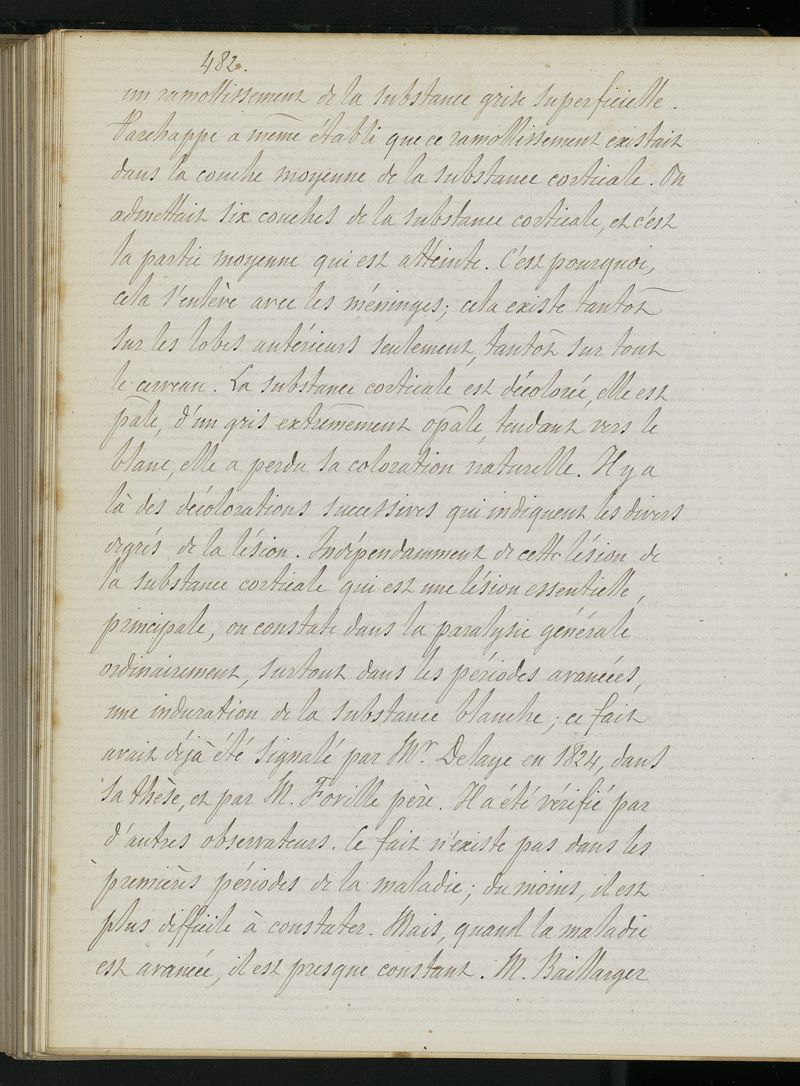 482.
un ramollissement de la substance grise superficielle.
Parchappe a même établi que ce ramollissement existait
dans la couche moyenne de la substance corticale. On
admettait six couches de la substance corticale, et c'est
la partie moyenne qui est atteinte. C'est pourquoi,
cela s'enlève avec les méninges; cela existe tantôt
sur les lobes antérieurs seulement, tantôt sur tout
le cerveau. La substance corticale est décolorée, elle est
pâle, d'un gris extrêmement opâle, tendant vers le
blanc, elle a perdu sa coloration naturelle. Il y a
là des décolorations successives qui indiquent les divers
degrés de la lésion. Indépendamment de cette lésion de
la substance corticale qui est une lésion essentielle,
principale, on constate dans la paralysie générale
ordinairement, surtout dans les périodes avancées,
une induration de la substance blanche; ce fait
avait déjà été signalé par Mr. Delaye en 1824, dans
sa thèse, et par M. Foville père. Il a été vérifié par
d'autres observateurs. Ce fait n'existe pas dans les
premières périodes de la maladie; du moins, il est
plus difficile à constater. Mais, quand la maladie
est avancée, il est presque constant. M. Baillarger